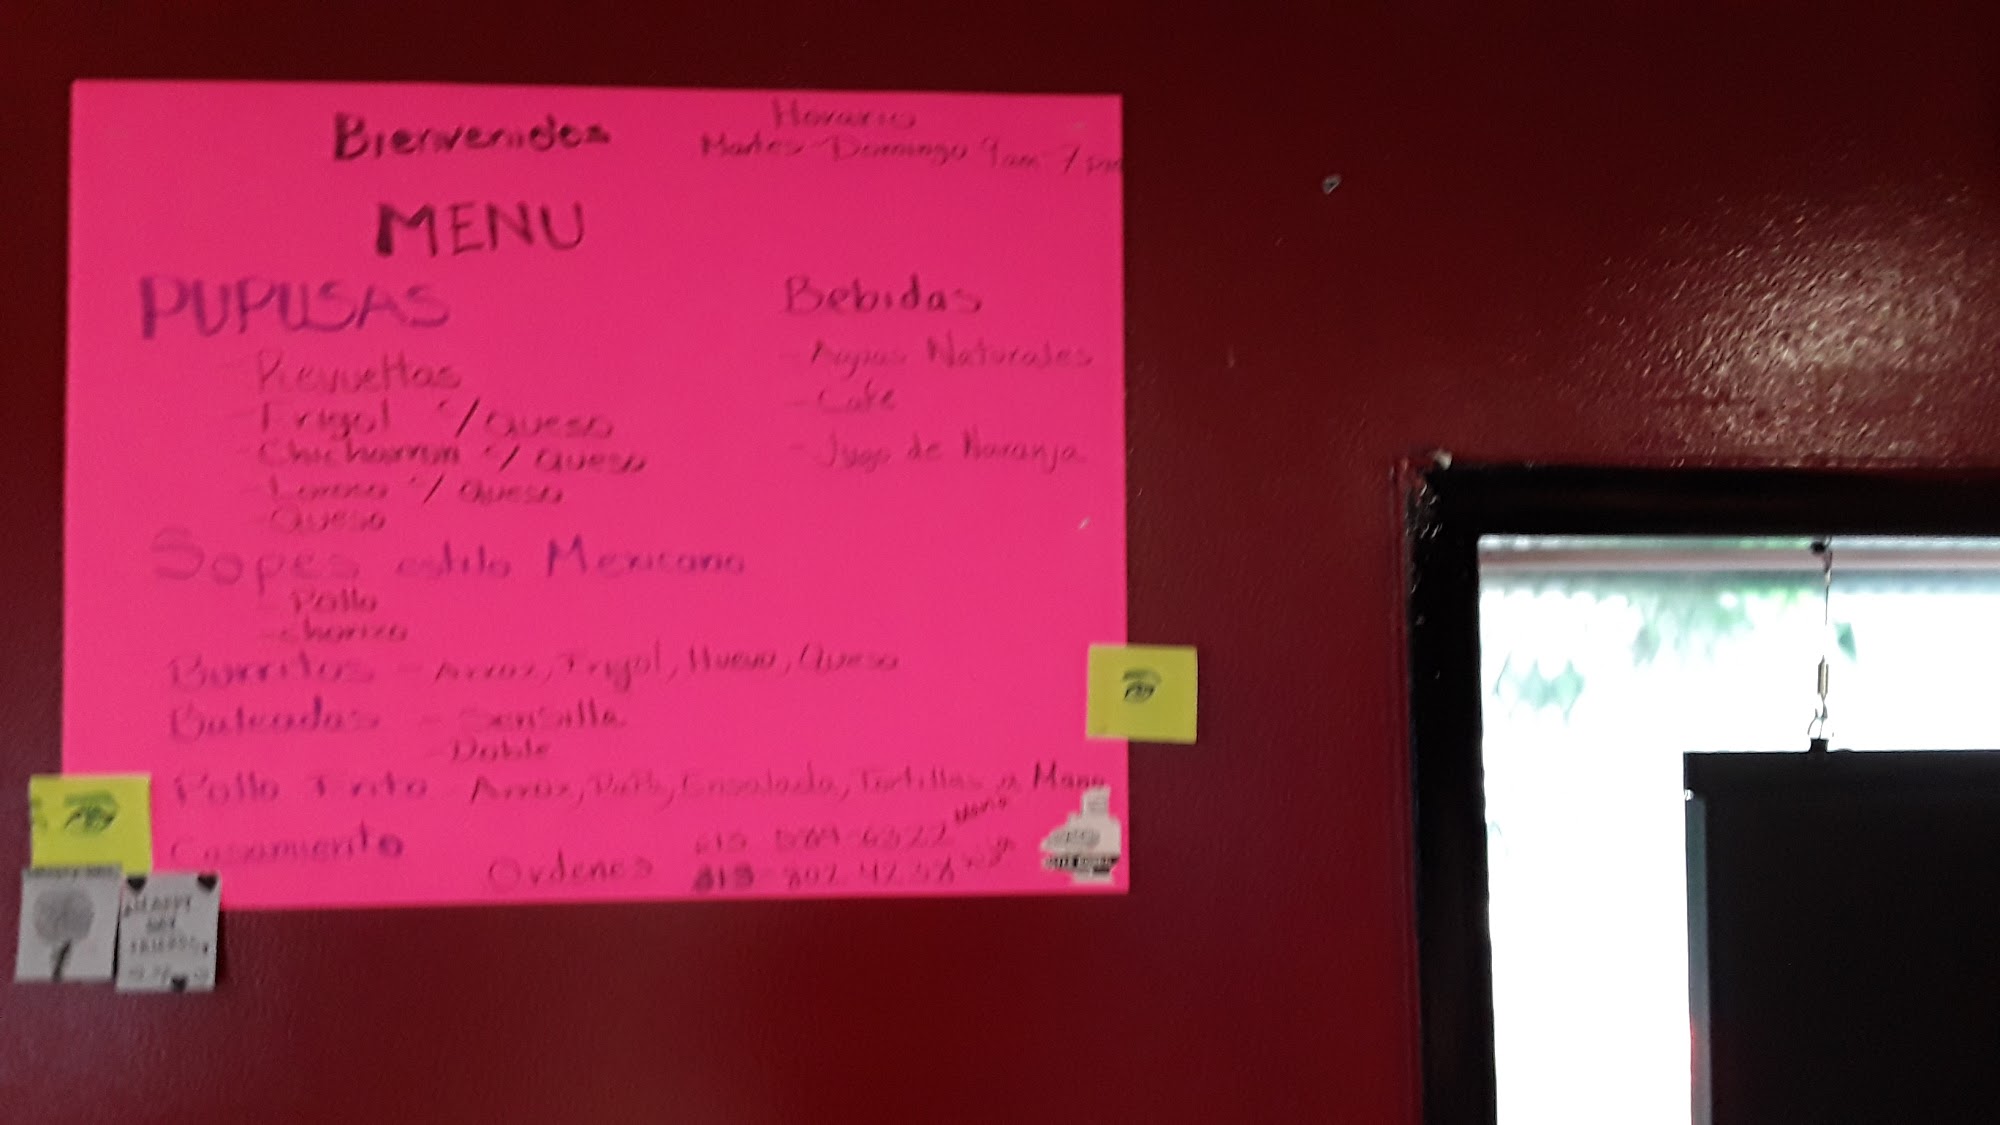 Bienvenidos
Horario
Martes-Domingo 9am 7pm
MENU
PUPUSAS
- Revueltas
- Frigol c/queso
- Chicharron c/queso
- Loroco c/queso
- Queso
Bebidas
- Aguas Naturales
- Cafe
- Jugo de Naranja
Sopes estilo Mexicano
- Pollo
- Chorizo
Burritos - Arroz, Frigol, Huevo, Queso
Baleadas - Sensilla
- Doble
Pollo Frito - Arroz, Ensalada, Tortillas a Mano
Casamiento
Ordenes
HAPPY
DAY
FRIENDS